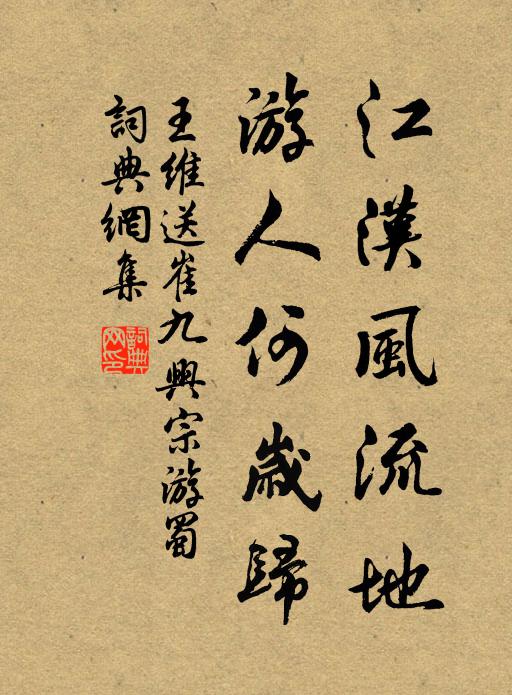 江漢風流地
游人何歲歸
王維送崔九興宗游蜀
詞典網集
詞典網印